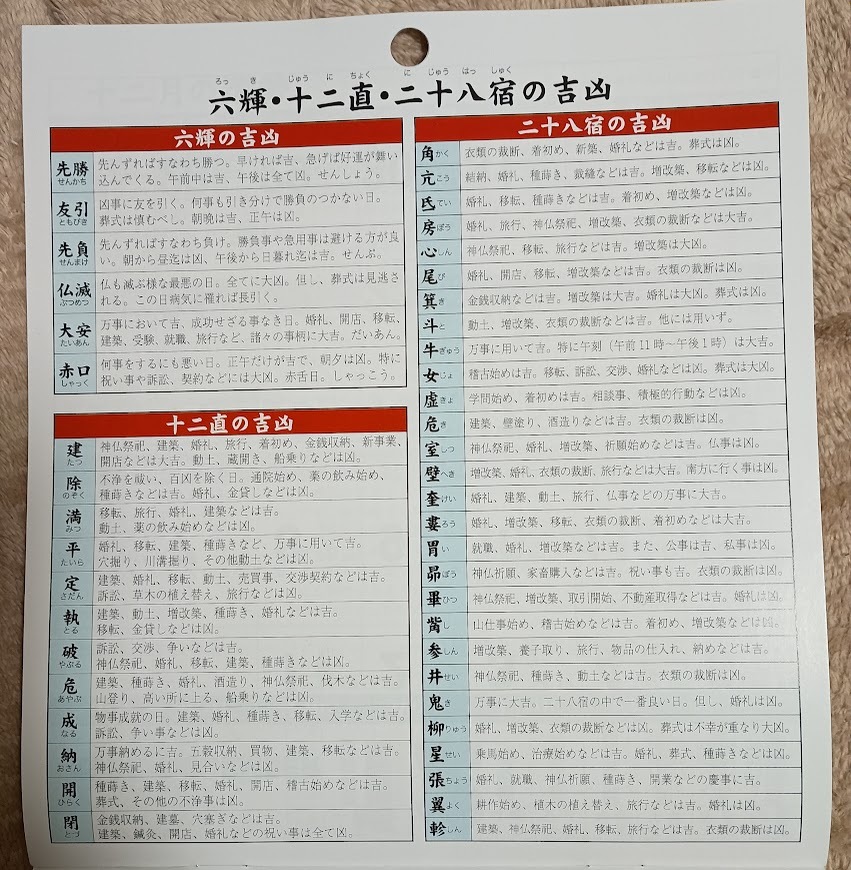 ろっ き じゅう に ちょく に じゅう はっ しゅく
六輝・十二直・二十八宿の吉凶
六輝の吉凶
先勝 せんかち
先んずればすなわち勝つ。早ければ吉、急げば好運が舞い
込んでくる。午前中は吉、午後は全て凶。せんしょう。
友引 ともびき
凶事に友を引く。何事も引き分けで勝負のつかない日。
葬式は慎むべし。朝晩は吉、正午は凶。
先負 せんまけ
先んずればすなわち負け。勝負事や急用事は避ける方が良
い。朝から昼迄は凶、午後から日暮れ迄は吉。せんぷ。
仏滅 ぶつめつ
仏も滅ぶ様な最悪の日。全てに大凶。但し、葬式は見逃さ
れる。この日病気に罹れば長引く。
大安 たいあん
万事において吉、成功せざる事なき日。婚礼、開店、移転、
建築、受験、就職、旅行など、諸々の事柄に大吉。だいあん。
赤口 しゃっく
何事をするにも悪い日。正午だけが吉で、朝夕は凶。特に
祝い事や訴訟、契約などには大凶。赤舌日。しゃっこう。
十二直の吉凶
建 たつ
神仏祭祀、建築、婚礼、旅行、着初め、金銭収納、新事業、
開店などは大吉。動土、蔵開き、船乗りなどは凶。
除 のぞく
不浄を祓い、百凶を除く日。通院始め、薬の飲み始め、
種蒔きなどは吉。婚礼、金貸しなどは凶。
満 みつ
移転、旅行、婚礼、建築などは吉。
動土、薬の飲み始めなどは凶。
平 たいら
婚礼、移転、建築、種蒔きなど、万事に用いて吉。
穴掘り、川溝掘り、その他動土などは凶。
定 さだん
建築、婚礼、移転、動土、売買事、交渉契約などは吉。
訴訟、草木の植え替え、旅行などは凶。
執 とる
建築、動土、増改築、種蒔き、婚礼などは吉。
移転、金貸しなどは凶。
破 やぶる
訴訟、交渉、争いなどは吉。
神仏祭祀、婚礼、移転、建築、種蒔きなどは凶。
危 あやぶ
建築、種蒔き、婚礼、酒造り、神仏祭祀、伐木などは吉。
山登り、高い所に上る、船乗りなどは凶。
成 なる
物事成就の日。建築、婚礼、種蒔き、移転、入学などは吉。
訴訟、争い事などは凶。
納 おさん
万事納めるに吉。五穀収納、買物、建築、移転などは吉。
神仏祭祀、婚礼、見合いなどは凶。
開 ひらく
種蒔き、建築、移転、婚礼、開店、稽古始めなどは吉。
葬式、その他の不浄事は凶。
閉 とづ
金銭収納、建墓、穴塞ぎなどは吉。
建築、鍼灸、開店、婚礼などの祝い事は全て凶。
二十八宿の吉凶
角 かく 衣類の裁断、着初め、新築、婚礼などは吉。葬式は凶。
亢 こう 結納、婚礼、種蒔き、裁縫などは吉。増改築、移転などは凶。
氐 てい 婚礼、移転、種蒔きなどは吉。着初め、増改築などは凶。
房 ぼう 婚礼、旅行、神仏祭祀、増改築、衣類の裁断などは大吉。
心 しん 神仏祭祀、移転、旅行などは吉。増改築は大凶。
尾 び 婚礼、開店、移転、増改築などは吉。衣類の裁断は凶。
箕 き 金銭収納などは吉。増改築は大吉。婚礼は大凶。葬式は凶。
斗 と 動土、増改築、衣類の裁断などは吉。他には用いず。
牛 ぎゅう 万事に用いて吉。特に午刻（午前11時〜午後1時）は大吉。
女 じょ 稽古始めは吉。移転、訴訟、交渉、婚礼などは凶。葬式は大凶。
虚 きょ 学問始め、着初めは吉。相談事、積極的行動などは凶。
危 き 建築、壁塗り、酒造りなどは吉。衣類の裁断は凶。
室 しつ 神仏祭祀、婚礼、増改築、祈願始めなどは吉。仏事は凶。
壁 へき 増改築、婚礼、衣類の裁断、旅行などは大吉。南方に行く事は凶。
奎 けい 婚礼、建築、動土、旅行、仏事などの万事に大吉。
婁 ろう 婚礼、増改築、移転、衣類の裁断、着初めなどは大吉。
胃 い 就職、婚礼、増改築などは吉。また、公事は吉、私事は凶。
昴 ぼう 神仏祈願、家畜購入などは吉。祝い事も吉。衣類の裁断は凶。
畢 ひつ 神仏祭祀、増改築、取引開始、不動産取得などは吉。婚礼は凶。
觜 し 山仕事始め、稽古始めなどは吉。着初め、増改築などは凶。
参 しん 増改築、養子取り、旅行、物品の仕入れ、納めなどは吉。
井 せい 神仏祭祀、種蒔き、動土などは吉。衣類の裁断は凶。
鬼 き 万事に大吉。二十八宿の中で一番良い日。但し、婚礼は凶。
柳 りゅう 婚礼、増改築、衣類の裁断などは凶。葬式は不幸が重なり大凶。
星 せい 乗馬始め、治療始めなどは吉。婚礼、葬式、種蒔きなどは凶。
張 ちょう 婚礼、就職、神仏祈願、種蒔き、開業などの慶事に吉。
翼 よく 耕作始め、植木の植え替え、旅行などは吉。婚礼は凶。
軫 しん 建築、神仏祭祀、婚礼、移転、旅行などは吉。衣類の裁断は凶。